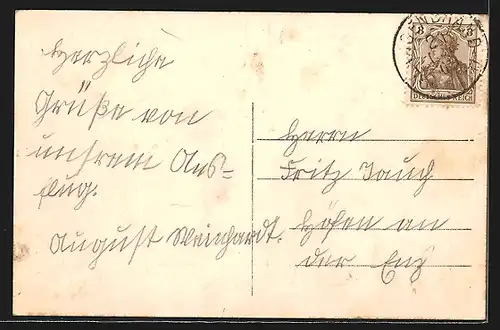 Herzliche
Grüße von
unsrem Aus-
flug.
August Weinhardt.
Herrn
Fritz Jauch
Höfen an
der Enz
DEUTSCHES REICH